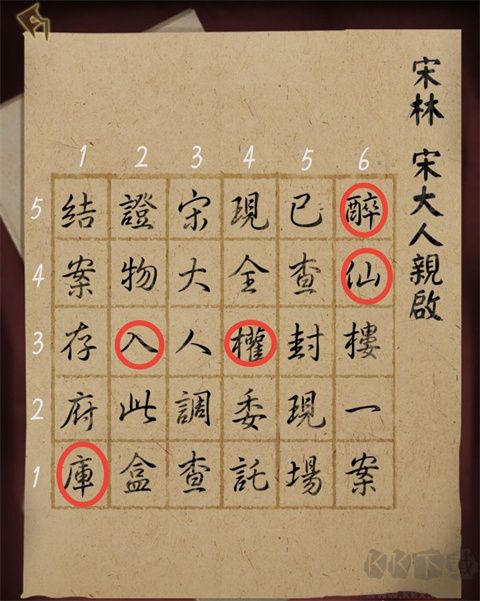 宋林 宋大人親啟
1 2 3 4 5 6
5 結 證 宋 現 已 醉
4 案 物 大 全 查 仙
3 存 入 人 權 封 樓
2 府 此 調 委 現 一
1 庫 盒 查 託 場 案
KK下载